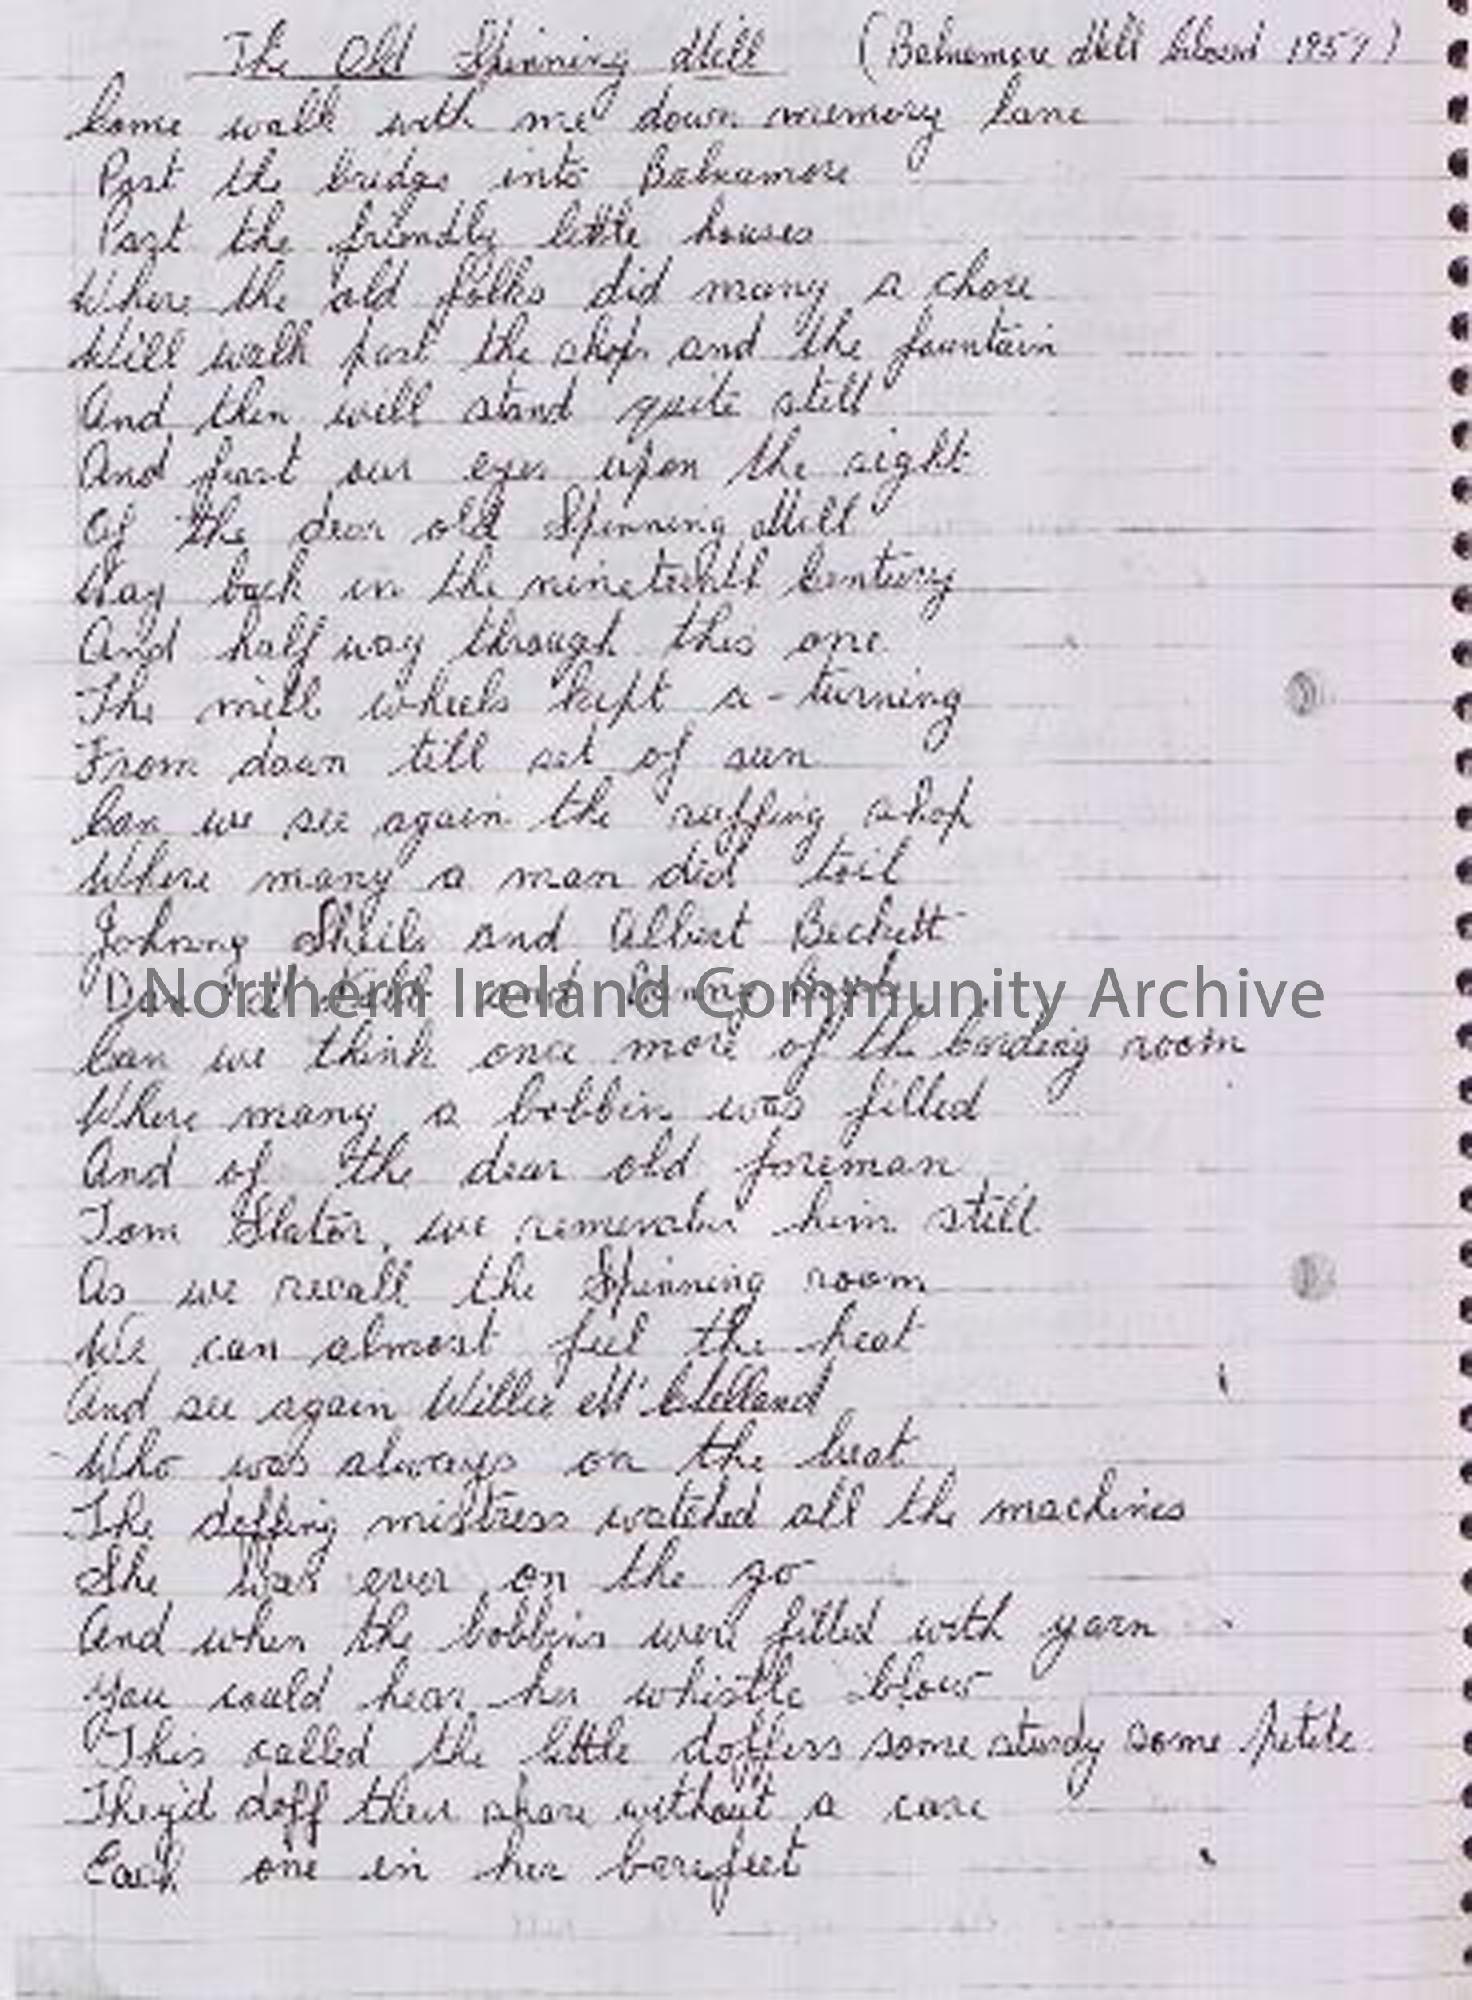 The Old Spinning Mill (Balnamore Mill Closed 1959)
Come walk with me down memory lane
Past the bridge into Balnamore
Past the friendly little houses
Where the old folks did many a chore
Will walk past the shop and the fountain
And then will stand quite still
And feast our eyes upon the sight
Of the dear old Spinning Mill
Way back in the nineteenth Century
And half way through this one
The mill wheels kept a-turning
From dawn till set of sun
Can we see again the ruffing shop
Where many a man did toil
Johnny Sheils and Albert Beckett
Dan and
Northern Ireland Community Archive
Can we think once more of the carding room
Where many a bobbin was filled
And of the dear old foreman
Tom Slator, we remember him still
As we recall the Spinning room
We can almost feel the heat
And see again Willie M'Clelland
Who was always on the beat
The doffing mistress watched all the machines
She was ever on the go
And when the bobbins were filled with yarn
You could hear her whistle blow
This called the little doffers some sturdy some petite
They'd doff their share without a care
Each one in her barefeet